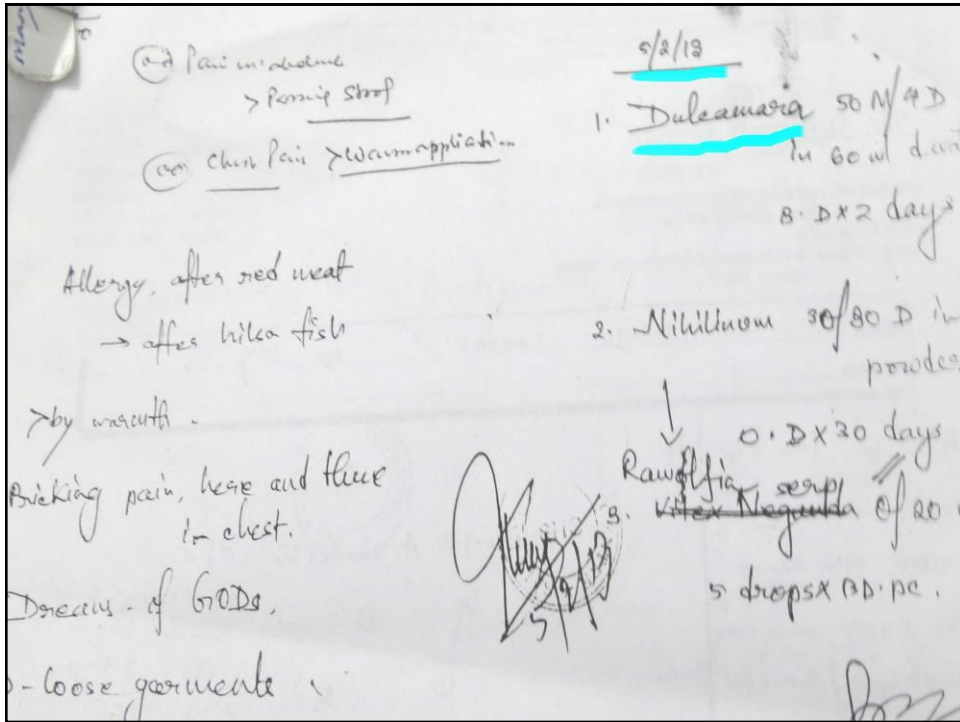 Pain in abdome
> Passing stool
Chest Pain > warm application
Allergy, after red meat
→ after hilsa fish
> by warmth.
Pricking pain, here and there
in chest.
Dream - of GODs.
- loose garments
5/2/18
1. Dulcamara 50 M/4D
in 60 ml d.wat
B.D x 2 days
2. Nihilinum 30/30 D in
powder
O.D x 30 days
Rauwolfia serp
3. Vitex Negunda Q/ 20
5 drops x BD. PC.